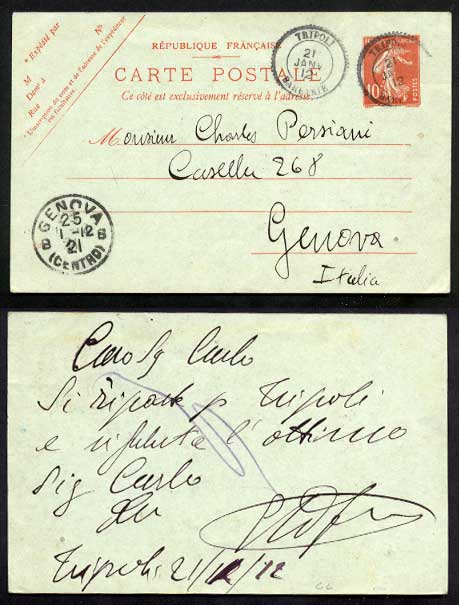 * Expédié par
No
M
Demt à
Rue
* L'inscription du nom et de l'adresse de l'expéditeur
est facultative.
RÉPUBLIQUE FRANÇAISE
CARTE POSTALE
Ce côté est exclusivement réservé à l'adresse.
TRIPOLI
21
JANV
12
BARBARIE
TRIPOLI
21
12
10c
POSTES
Monsieur Charles Persiani
Casella 268
Genova
Italia
GENOVA
25
1 -12
B B
21
(CENTRO)
Caro Sg Carlo
Si riparte p Tripoli
e risaluta l'ottimo
Sig Carlo
Tripoli 21/1/12